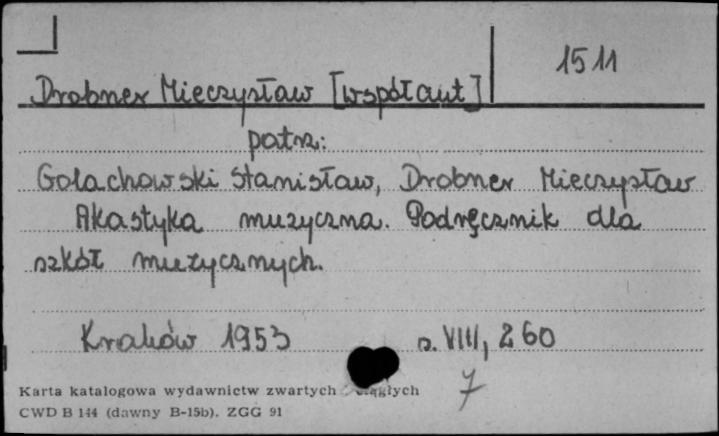 1511
Drobner Mieczysław [współaut]
patrz:
Golachowski Stanisław, Drobner Mieczysław
Akastyka muzyczna. Podręcznik dla
szkół muzycznych.
Kraków 1953 s. VIII, 260
7
Karta katalogowa wydawnictw zwartych ciągłych
CWD B 144 (dawny B-15b). ZGG 91